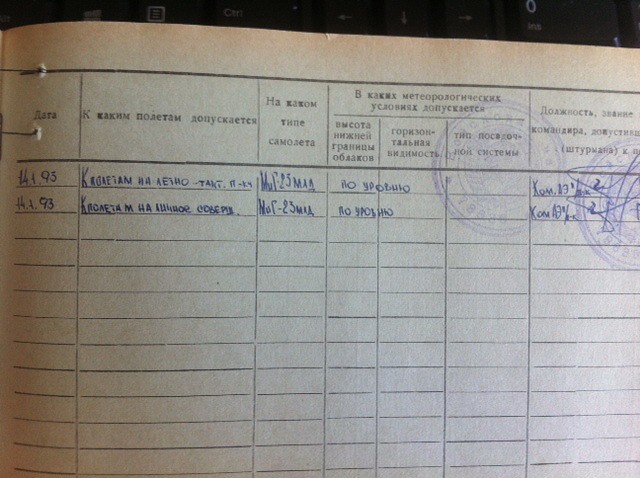 Ctrl
0
Ins
Дата
К каким полетам допускается
На каком
типе
самолета
В каких метеорологических
условиях допускается
высота
нижней
границы
облаков
горизон-
тальная
видимость
тип посадоч-
ной системы
Должность, звание
командира, допустив
(штурмана) к п
14.1.93 К полетам на летно-такт. п-ку МиГ-23млд по уровню Ком. АЭ п/п-к
14.1.93 К полетам на личное соверш. МиГ-23млд по уровню Ком. АЭ п/п-к